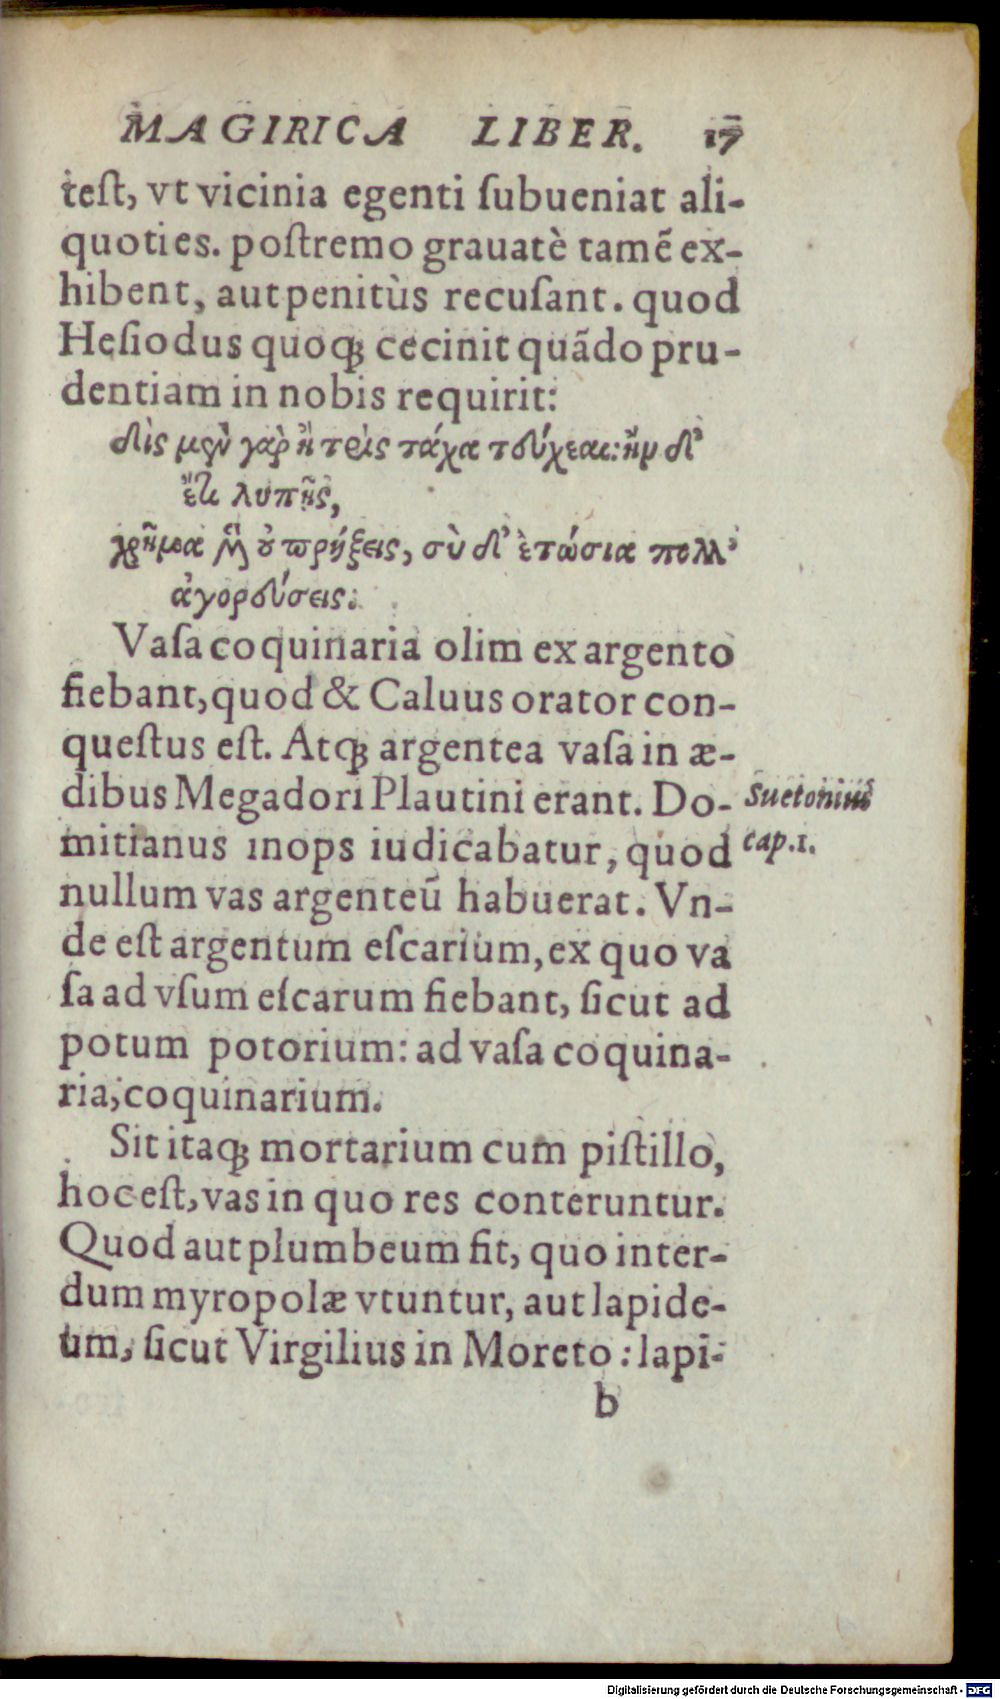 MAGIRICA LIBER. 17
teſt, vt vicinia egenti ſubueniat ali-
quoties. poſtremo grauatè tamē ex-
hibent, aut penitùs recuſant. quod
Heſiodus quoq; cecinit quādo pru-
dentiam in nobis requirit:
δὶς μὲν γὰρ ἢ τρὶς τάχα τεύξεαι: ἢν δ'
ἔτι λυπῇς,
χρῆμα μὲν οὐ πρήξεις, σὺ δ' ἐτώσια πολλ'
ἀγορεύσεις.
Vaſa coquinaria olim ex argento
fiebant, quod & Caluus orator con-
queſtus eſt. Atq; argentea vaſa in æ-
dibus Megadori Plautini erant. Do-
Suetonius
mitianus inops iudicabatur, quod
cap.1.
nullum vas argenteū habuerat. Vn-
de eſt argentum eſcarium, ex quo va
ſa ad vſum eſcarum fiebant, ſicut ad
potum potorium: ad vaſa coquina-
ria, coquinarium.
Sit itaq; mortarium cum piſtillo,
hoc eſt, vas in quo res conteruntur.
Quod aut plumbeum fit, quo inter-
dum myropolæ vtuntur, aut lapide-
um, ſicut Virgilius in Moreto: lapi-
b
Digitalisierung gefördert durch die Deutsche Forschungsgemeinschaft - DFG